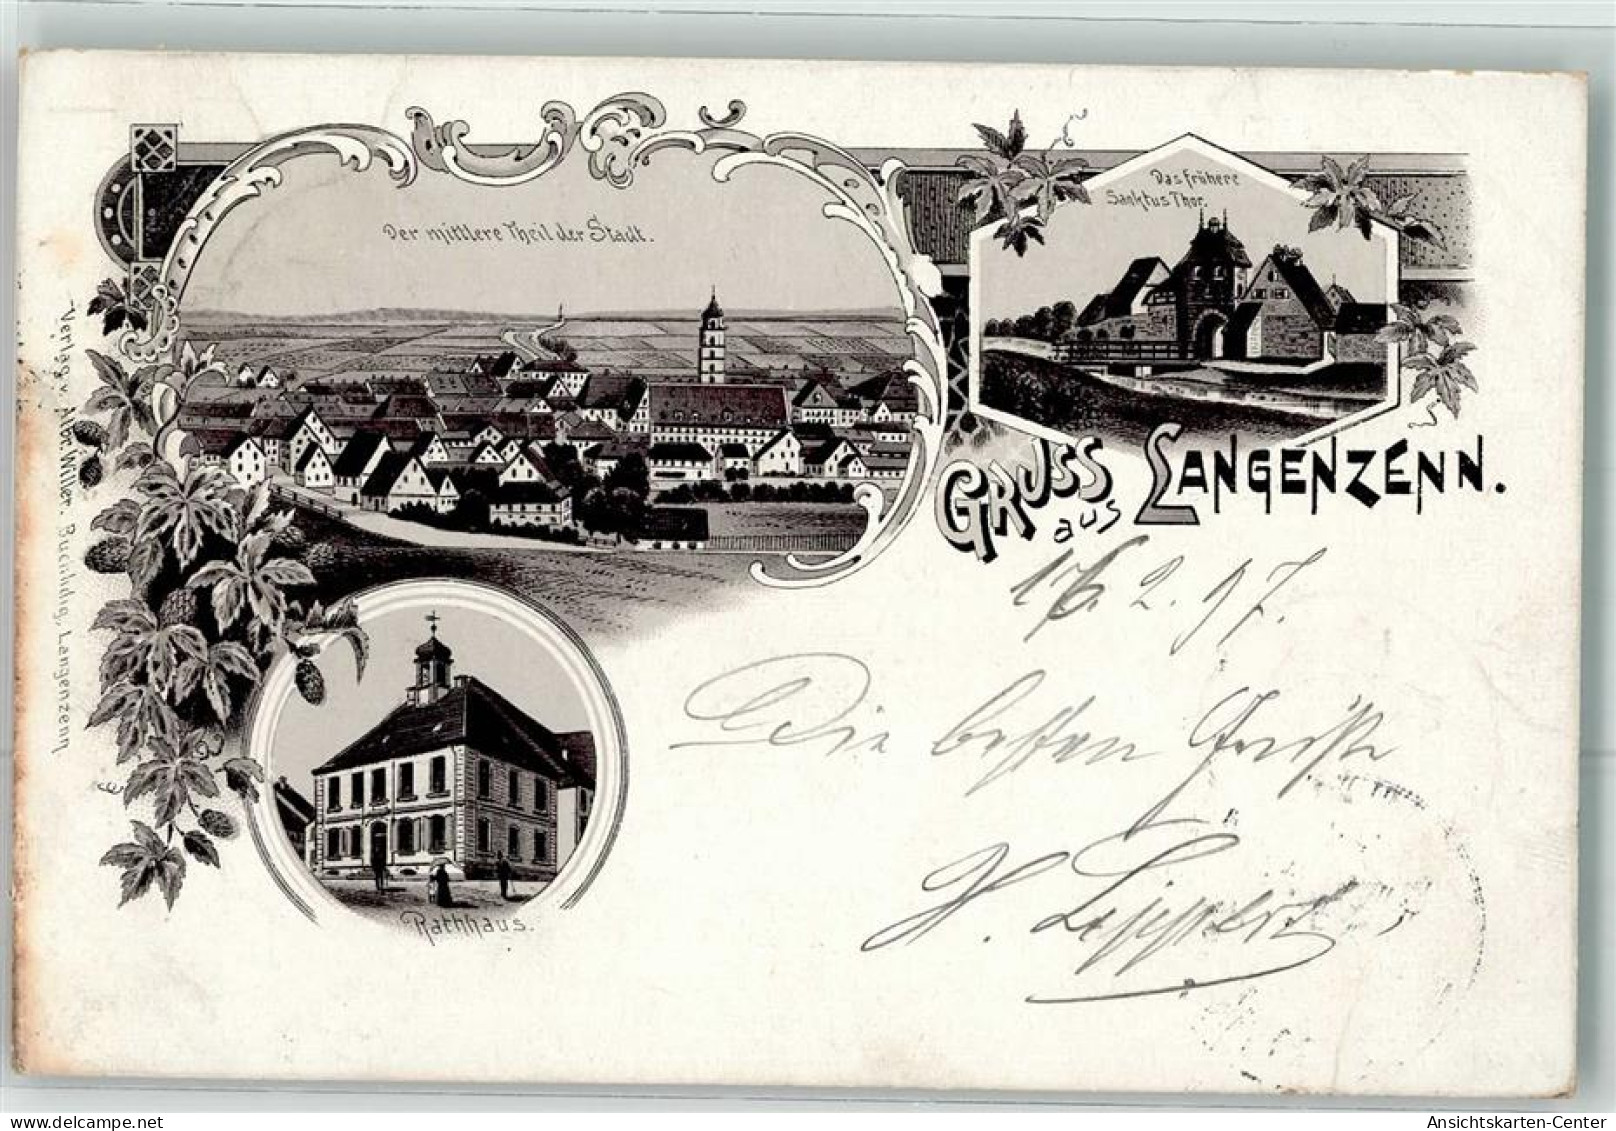 Der mittlere Theil der Stadt.
Das frühere
Sanktus Thor.
GRUSS
aus
LANGENZENN.
Rathhaus.
Verlag v. Albr. Willer, Buchhdlg, Langenzenn
2. 97.
Die besten Grüße
H.
Ansichtskarten-Center